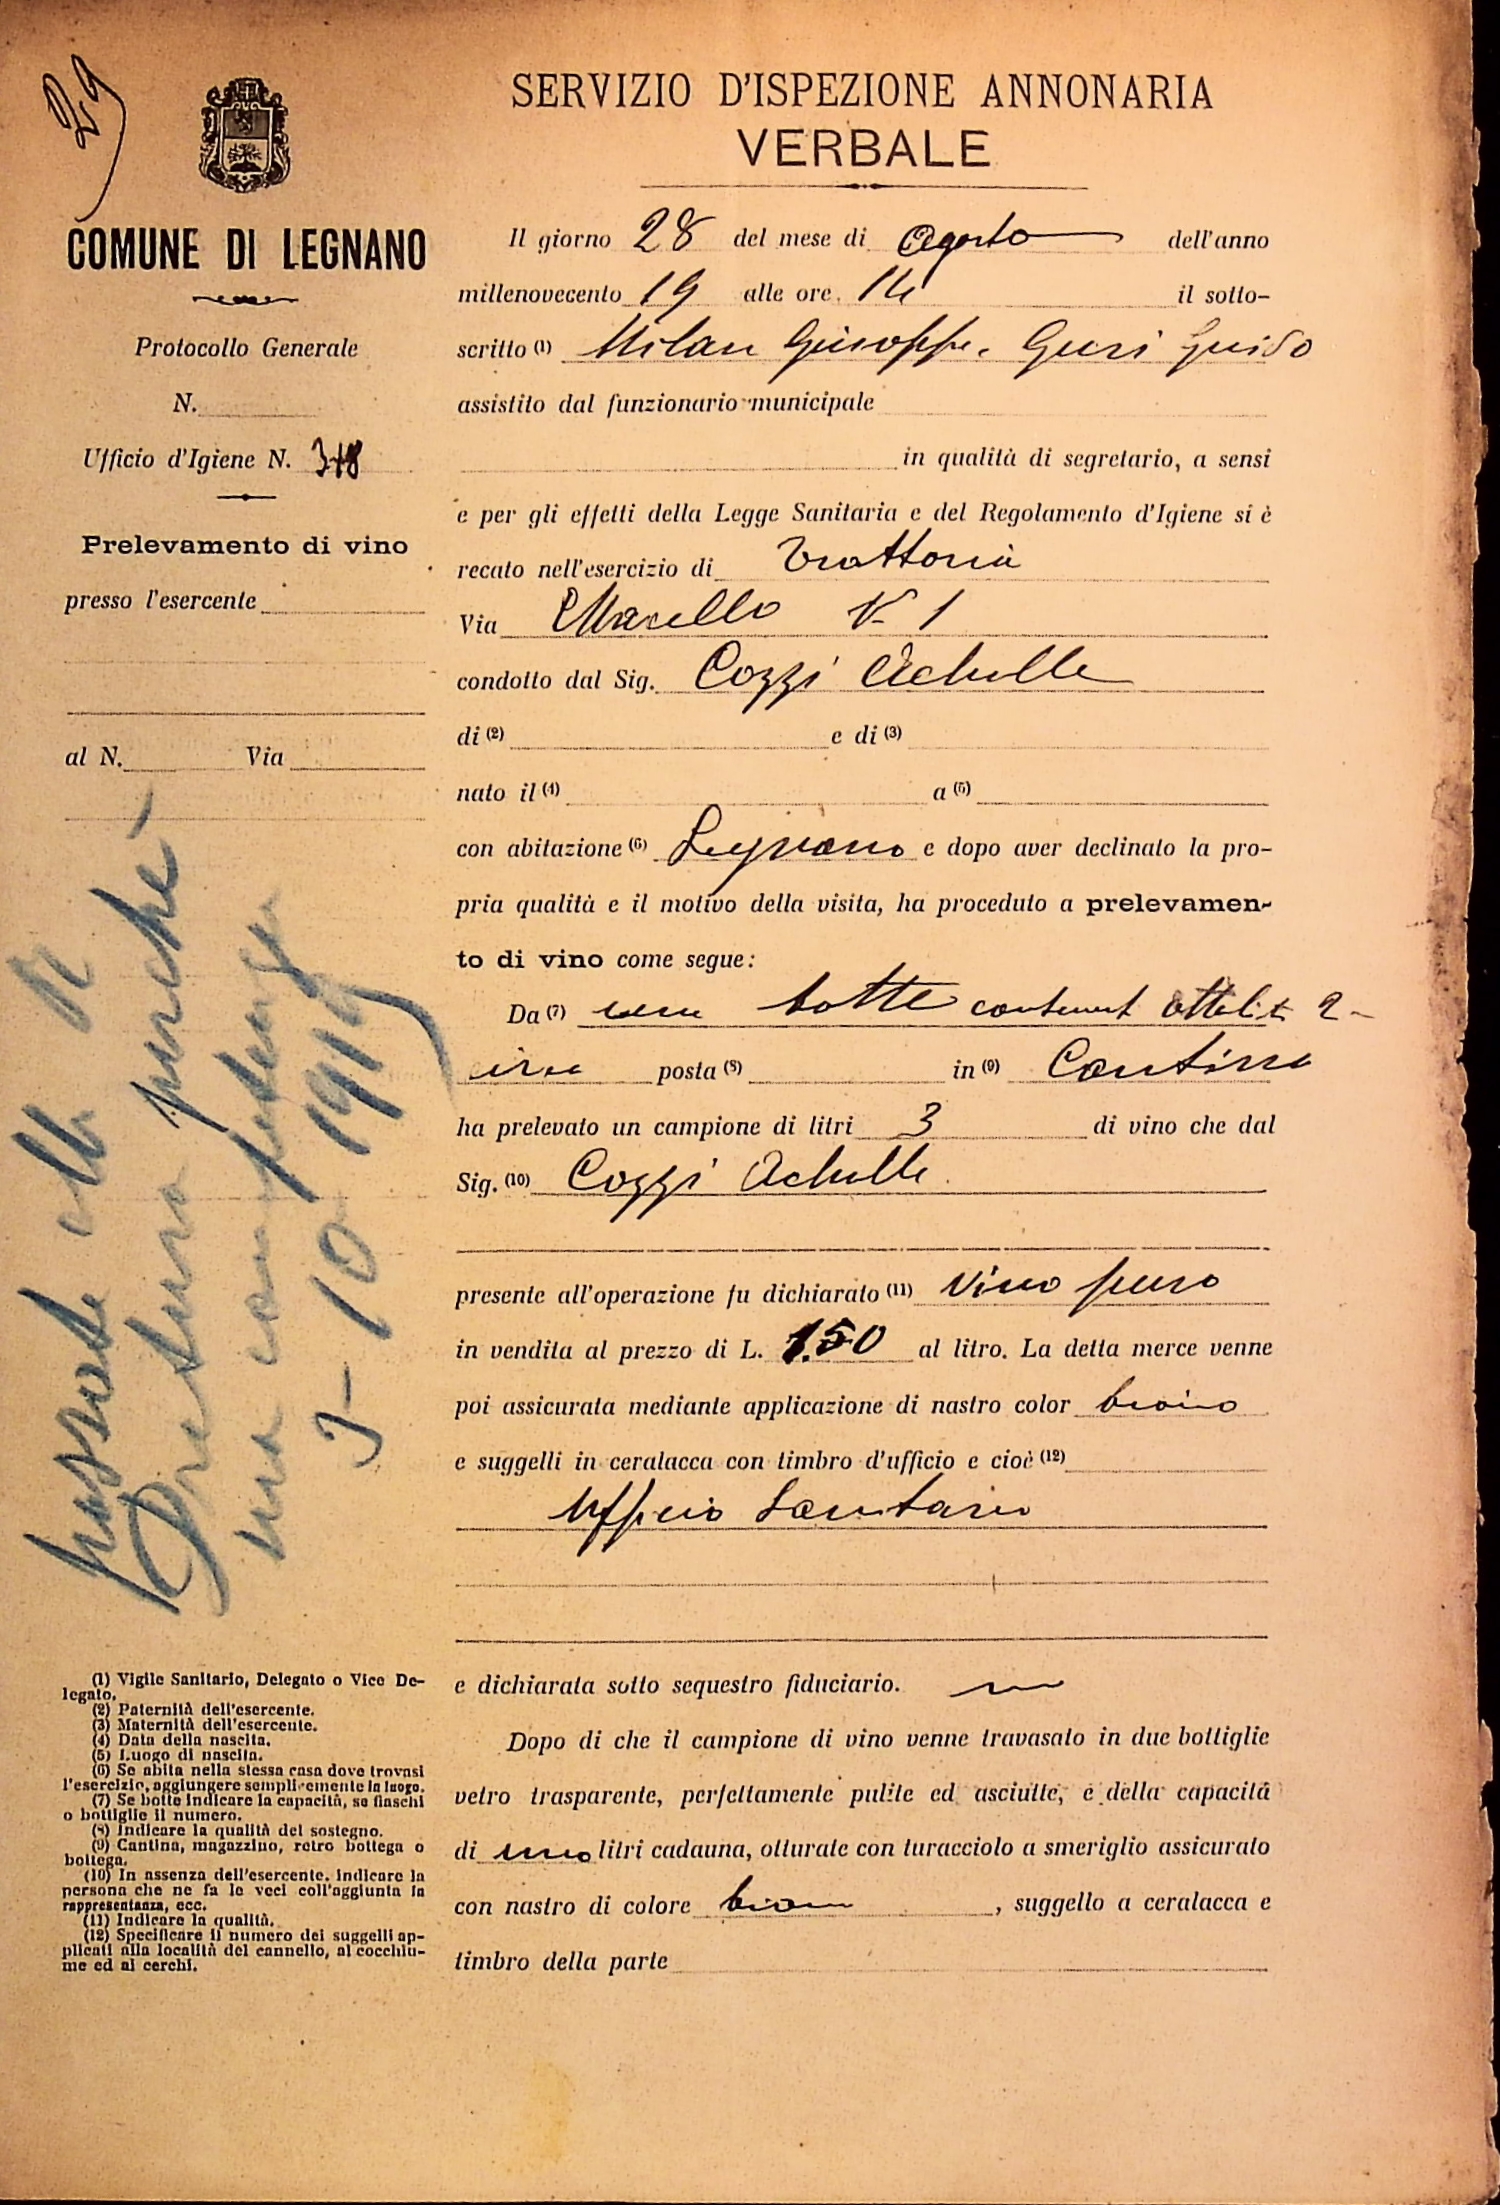 29
COMUNE DI LEGNANO
Protocollo Generale
N.
Ufficio d'Igiene N. 378
Prelevamento di vino
presso l'esercente
al N. Via
passato alla R
Pretura perché
sua competenza
3-10-1919
(1) Vigile Sanitario, Delegato o Vice De-
legato.
(2) Paternità dell'esercente.
(3) Maternità dell'esercente.
(4) Data della nascita.
(5) Luogo di nascita.
(6) Se abita nella stessa casa dove trovasi
l'esercizio, aggiungere semplicemente in luogo.
(7) Se botte indicare la capacità, se fiaschi
o bottiglie il numero.
(8) Indicare la qualità del sostegno.
(9) Cantina, magazzino, retro bottega o
bottega.
(10) In assenza dell'esercente, indicare la
persona che ne fa le veci coll'aggiunta in
rappresentanza, ecc.
(11) Indicare la qualità.
(12) Specificare il numero dei suggelli ap-
plicati alla località del cannello, al cocchiu-
me ed ai cerchi.
SERVIZIO D'ISPEZIONE ANNONARIA
VERBALE
Il giorno 28 del mese di Agosto dell'anno
millenovecento 19 alle ore 14 il sotto-
scritto (1) Milan Giuseppe. Guido
assistito dal funzionario municipale
in qualità di segretario, a sensi
e per gli effetti della Legge Sanitaria e del Regolamento d'Igiene si è
recato nell'esercizio di Trattoria
Via Macello N 1
condotto dal Sig. Cozzi Achille
di (2) e di (3)
nato il (4) a (5)
con abitazione (6) Legnano e dopo aver declinato la pro-
pria qualità e il motivo della visita, ha proceduto a prelevamen-
to di vino come segue:
Da (7) una botte contenent ettolit 2-
posta (8) in (9) Cantina
ha prelevato un campione di litri 3 di vino che dal
Sig. (10) Cozzi Achille
presente all'operazione fu dichiarato (11) Vino puro
in vendita al prezzo di L. 1.50 al litro. La detta merce venne
poi assicurata mediante applicazione di nastro color
e suggelli in ceralacca con timbro d'ufficio e cioè (12)
Ufficio Sanitario
e dichiarata sotto sequestro fiduciario.
Dopo di che il campione di vino venne travasato in due bottiglie
vetro trasparente, perfettamente pulite ed asciutte, e della capacità
di uno litri cadauna, otturate con turacciolo a smeriglio assicurato
con nastro di colore , suggello a ceralacca e
timbro della parte